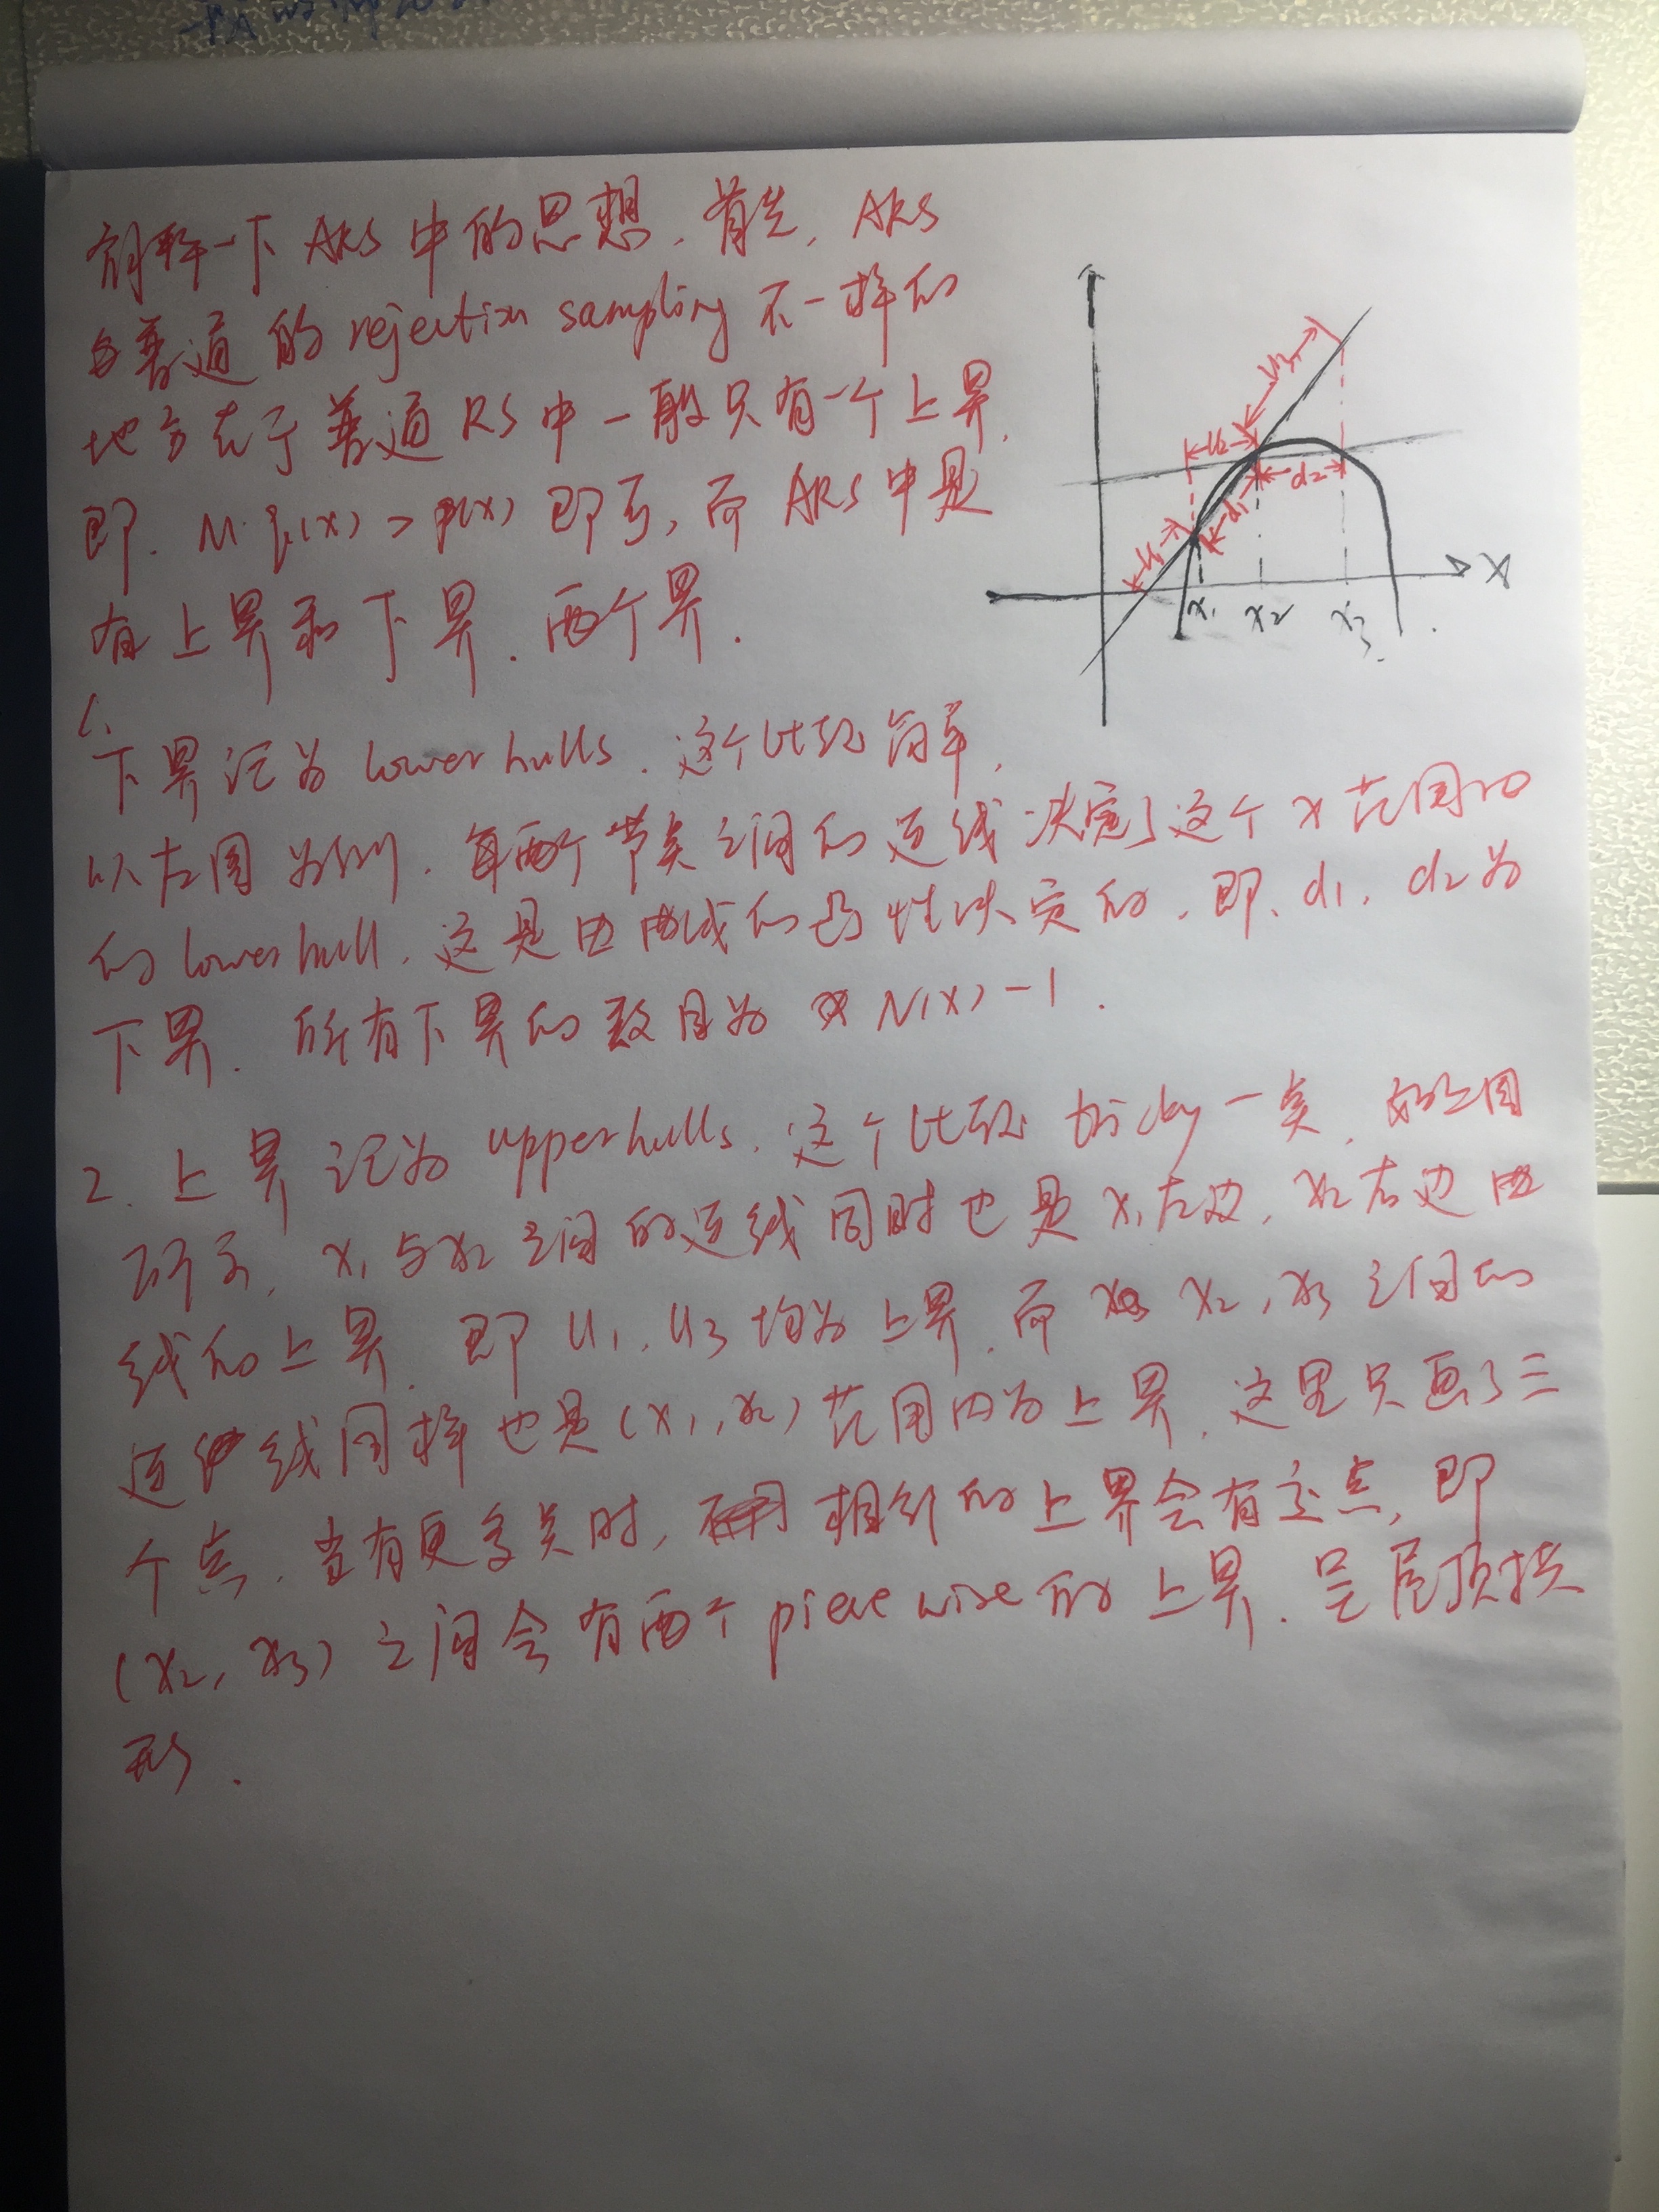 解释一下 ARS 中的思想. 首先, ARS
与普通的 rejection sampling 不一样的
地方在于普通 RS 中一般只有一个上界.
即. M·q(x) > p(x) 即可, 而 ARS 中是
有上界和下界. 两个界.
1.
下界记为 lower hulls. 这个比较简单,
以左图为例. 每两个节点之间的连线决定了这个 x 范围内
的 lower hull. 这是由曲线的凸性决定的. 即. d1, d2 为
下界. 所有下界的数目为 N(x)-1.
2. 上界记为 upper hulls. 这个比较 tricky 一点. 如上图
所示, x1 与 x2 之间的连线同时也是 x1 左边, x2 右边曲
线的上界. 即 u1, u3 均为上界. 而 x2, x3 之间的
连线同样也是 (x1, x2) 范围内为上界. 这里只画了三
个点. 当有更多点时, 相邻的上界会有交点, 即
(x2, x3) 之间会有两个 piece wise 的上界. 呈屋顶拱
形.
u3
u2
d2
d1
u1
x
x1 x2 x3